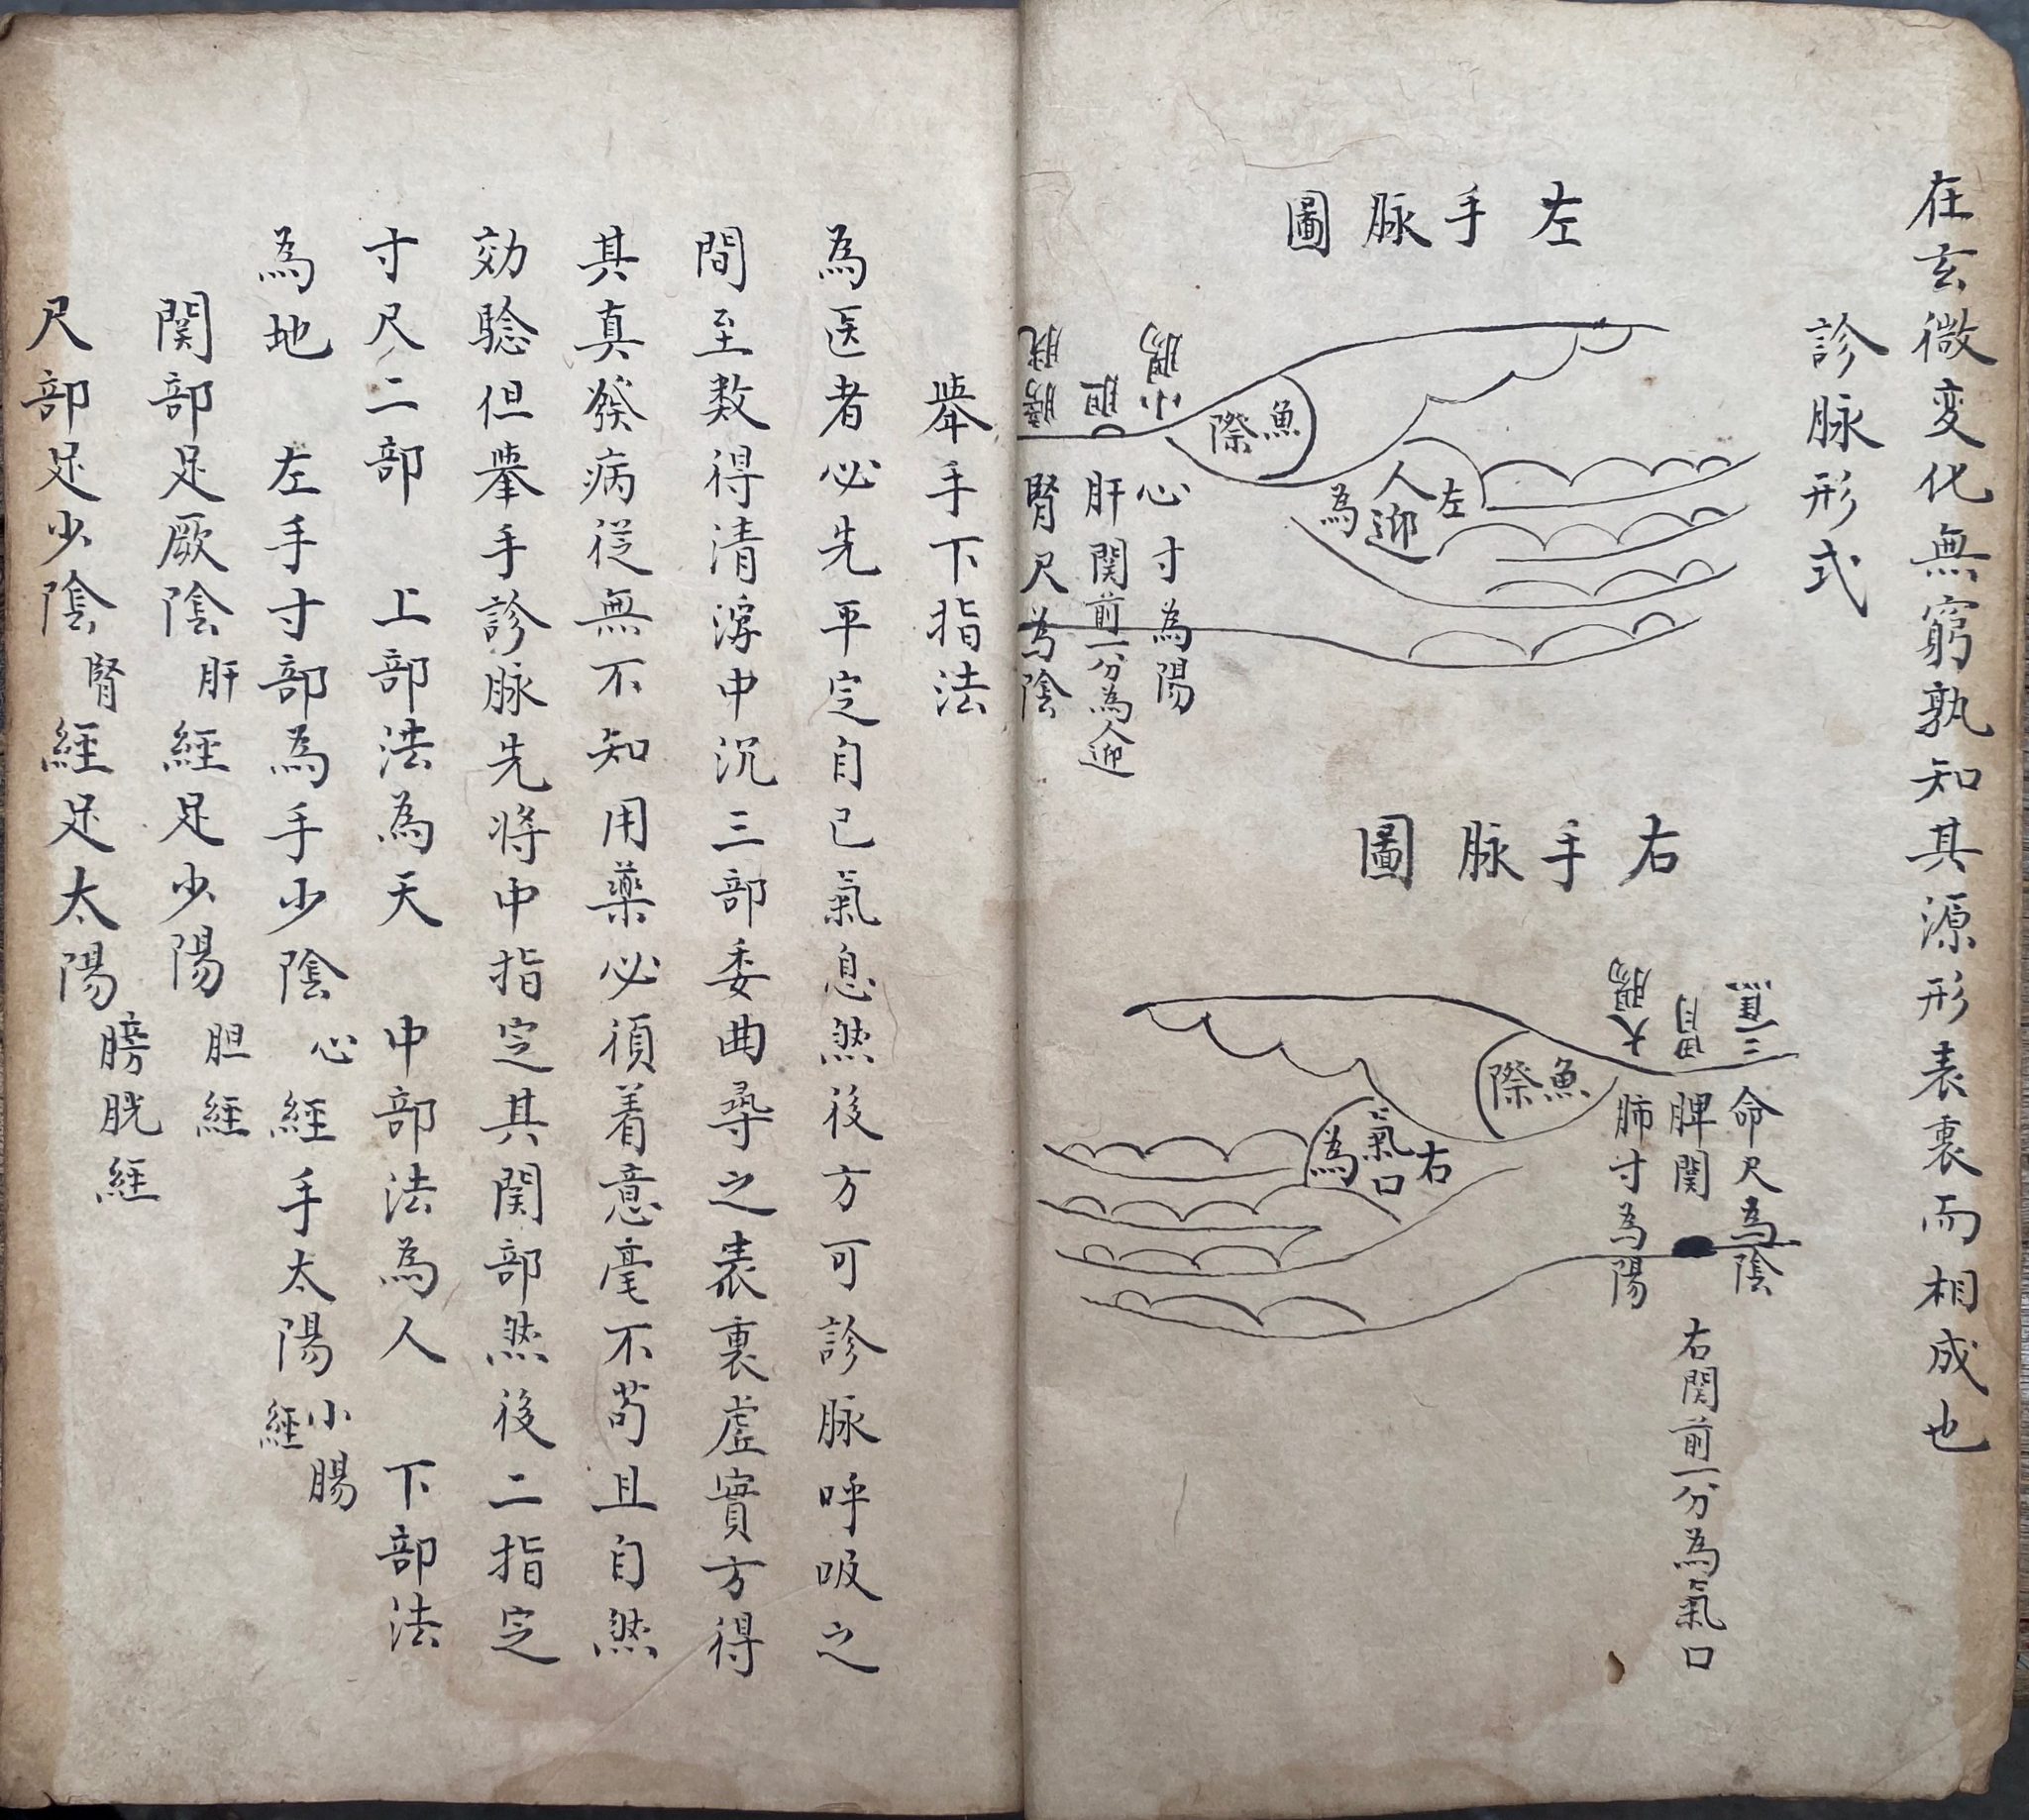 在玄微变化無窮孰知其源形表裏而相成也
診脉形式
左手脉圖
魚際
左
人迎
為
小腸
胆
膀胱
心寸為陽
肝関前一分為人迎
腎尺為陰
右手脉圖
三焦
胃
大腸
魚際
右
氣口
為
命尺為陰
脾関
右関前一分為氣口
肺寸為陽
舉手下指法
為医者必先平定自己氣息然後方可診脉呼吸之
間至数得清浮中沉三部委曲尋之表裏虛實方得
其真發病従無不知用藥必須着意毫不苟且自然
効騐但舉手診脉先将中指定其関部然後二指定
寸尺二部 上部法為天 中部法為人 下部法
為地 左手寸部為手少陰心經手太陽小腸經
関部足厥陰肝經足少陽胆經
尺部足少陰腎經足太陽膀胱經